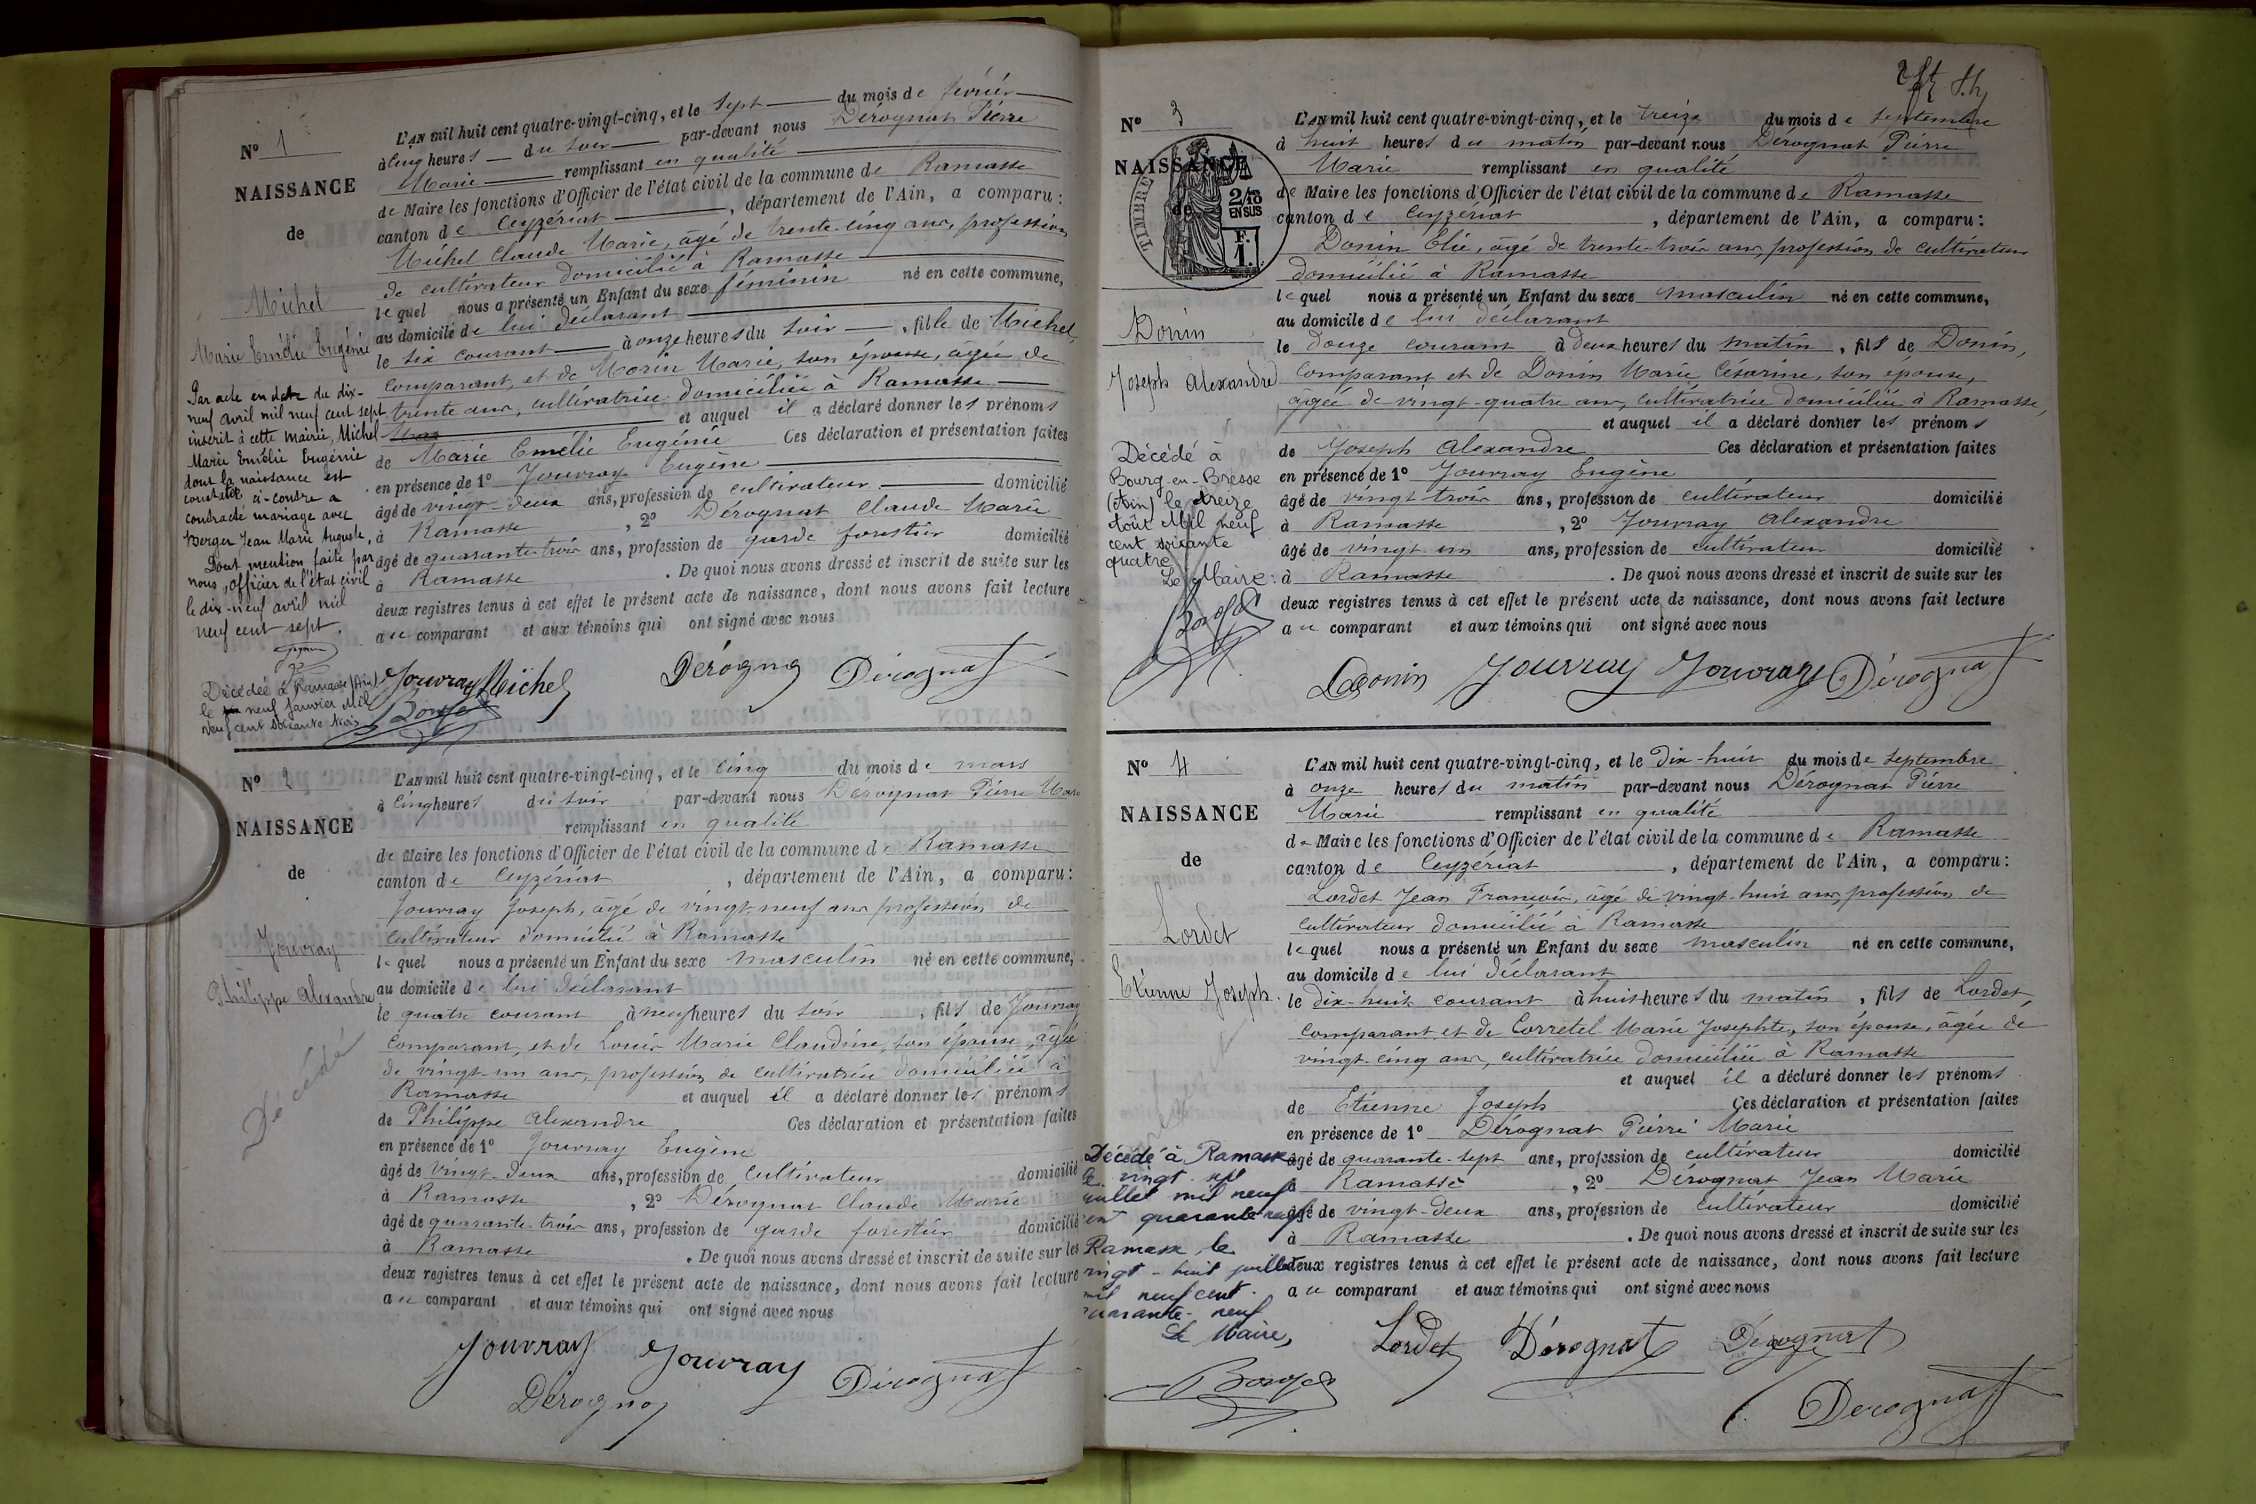 N° 1
NAISSANCE
de
Michel
Marie Emélie Eugénie
Par acte en date du dix-
neuf avril mil neuf cent sept
inscrit à cette mairie, Michel
Marie Emélie Eugénie
dont la naissance est
constatée ci-contre a
contracté mariage avec
Berger Jean Marie Auguste,
Dont mention faite par
nous, officier de l'état civil
le dix-neuf avril mil
neuf cent sept.
Décédée à Ramasse (Ain)
le neuf Janvier Mil
neuf cent soixante trois
L'AN mil huit cent quatre-vingt-cinq, et le sept du mois de février
à cinq heures du soir par-devant nous Dérognat Pierre
Marie remplissant en qualité
de Maire les fonctions d'Officier de l'état civil de la commune de Ramasse
canton de Ceyzériat, département de l'Ain, a comparu:
Michel Claude Marie, âgé de trente-cinq ans, profession
de cultivateur domicilié à Ramasse
lequel nous a présenté un Enfant du sexe féminin né en cette commune,
au domicile de lui déclarant
le six courant à onze heures du soir, fille de Michel,
comparant, et de Morin Marie, son épouse, âgée de
trente ans, cultivatrice domiciliée à Ramasse
et auquel il a déclaré donner les prénoms
de Marie Emélie Eugénie Ces déclaration et présentation faites
en présence de 1° Jouvray Eugène
âgé de vingt-deux ans, profession de cultivateur domicilié
à Ramasse, 2° Dérognat Claude Marie
âgé de quarante-trois ans, profession de garde forestier domicilié
à Ramasse. De quoi nous avons dressé et inscrit de suite sur les
deux registres tenus à cet effet le présent acte de naissance, dont nous avons fait lecture
au comparant et aux témoins qui ont signé avec nous
Jouvray Michel Dérognat Dérognat
N° 2
NAISSANCE
de
Jouvray
Philippe Alexandre
Décédé
L'AN mil huit cent quatre-vingt-cinq, et le cinq du mois de mars
à cinq heures du soir par-devant nous Dérognat Pierre Marie
remplissant en qualité
de Maire les fonctions d'Officier de l'état civil de la commune de Ramasse
canton de Ceyzériat, département de l'Ain, a comparu:
Jouvray Joseph, âgé de vingt-neuf ans profession de
cultivateur domicilié à Ramasse
lequel nous a présenté un Enfant du sexe masculin né en cette commune,
au domicile de lui déclarant
le quatre courant à neuf heures du soir, fils de Jouvray
comparant, et de Louis Marie Claudine, son épouse, âgée
de vingt-un ans, profession de cultivatrice domiciliée à
Ramasse et auquel il a déclaré donner les prénoms
de Philippe Alexandre Ces déclaration et présentation faites
en présence de 1° Jouvray Eugène
âgé de vingt-deux ans, profession de cultivateur domicilié
à Ramasse, 2° Dérognat Claude Marie
âgé de quarante-trois ans, profession de garde forestier domicilié
à Ramasse. De quoi nous avons dressé et inscrit de suite sur les
deux registres tenus à cet effet le présent acte de naissance, dont nous avons fait lecture
au comparant et aux témoins qui ont signé avec nous
Jouvray Jouvray Dérognat
Dérognat
N° 3
NAISSANCE
de
TIMBRE
2/10
EN SUS
F.
1.
Donin
Joseph Alexandre
Décédé à
Bourg-en-Bresse
(Ain) le treize
Août Mil neuf
cent soixante
quatre
Le Maire:
L'AN mil huit cent quatre-vingt-cinq, et le treize du mois de septembre
à huit heures du matin par-devant nous Dérognat Pierre
Marie remplissant en qualité
de Maire les fonctions d'Officier de l'état civil de la commune de Ramasse
canton de Ceyzériat, département de l'Ain, a comparu:
Donin Elie, âgé de trente-trois ans, profession de cultivateur
domicilié à Ramasse
lequel nous a présenté un Enfant du sexe masculin né en cette commune,
au domicile de lui déclarant
le douze courant à deux heures du matin, fils de Donin,
comparant et de Donin Marie Césarine, son épouse,
âgée de vingt-quatre ans, cultivatrice domiciliée à Ramasse,
et auquel il a déclaré donner les prénoms
de Joseph Alexandre Ces déclaration et présentation faites
en présence de 1° Jouvray Eugène
âgé de vingt trois ans, profession de cultivateur domicilié
à Ramasse, 2° Jouvray Alexandre
âgé de vingt-un ans, profession de cultivateur domicilié
à Ramasse. De quoi nous avons dressé et inscrit de suite sur les
deux registres tenus à cet effet le présent acte de naissance, dont nous avons fait lecture
au comparant et aux témoins qui ont signé avec nous
Donin Jouvray Jouvray Dérognat
N° 4
NAISSANCE
de
Lordet
Etienne Joseph.
Décédé à Ramasse
le vingt
juillet mil neuf
cent quarante neuf
Ramasse, le
vingt-huit juillet
mil neuf cent
quarante-neuf
Le Maire,
L'AN mil huit cent quatre-vingt-cinq, et le dix-huit du mois de septembre
à onze heures du matin par-devant nous Dérognat Pierre
Marie remplissant en qualité
de Maire les fonctions d'Officier de l'état civil de la commune de Ramasse
canton de Ceyzériat, département de l'Ain, a comparu:
Lordet Jean François, âgé de vingt-huit ans, profession de
cultivateur domicilié à Ramasse
lequel nous a présenté un Enfant du sexe masculin né en cette commune,
au domicile de lui déclarant
le dix-huit courant à huit heures du matin, fils de Lordet,
comparant et de Corretel Marie Josephte, son épouse, âgée de
vingt-cinq ans, cultivatrice domiciliée à Ramasse
et auquel il a déclaré donner les prénoms
de Etienne Joseph Ces déclaration et présentation faites
en présence de 1° Dérognat Pierre Marie
âgé de quarante-sept ans, profession de cultivateur domicilié
à Ramasse, 2° Dérognat Jean Marie
âgé de vingt-deux ans, profession de cultivateur domicilié
à Ramasse. De quoi nous avons dressé et inscrit de suite sur les
deux registres tenus à cet effet le présent acte de naissance, dont nous avons fait lecture
au comparant et aux témoins qui ont signé avec nous
Lordet Dérognat Dérognat
Dérognat